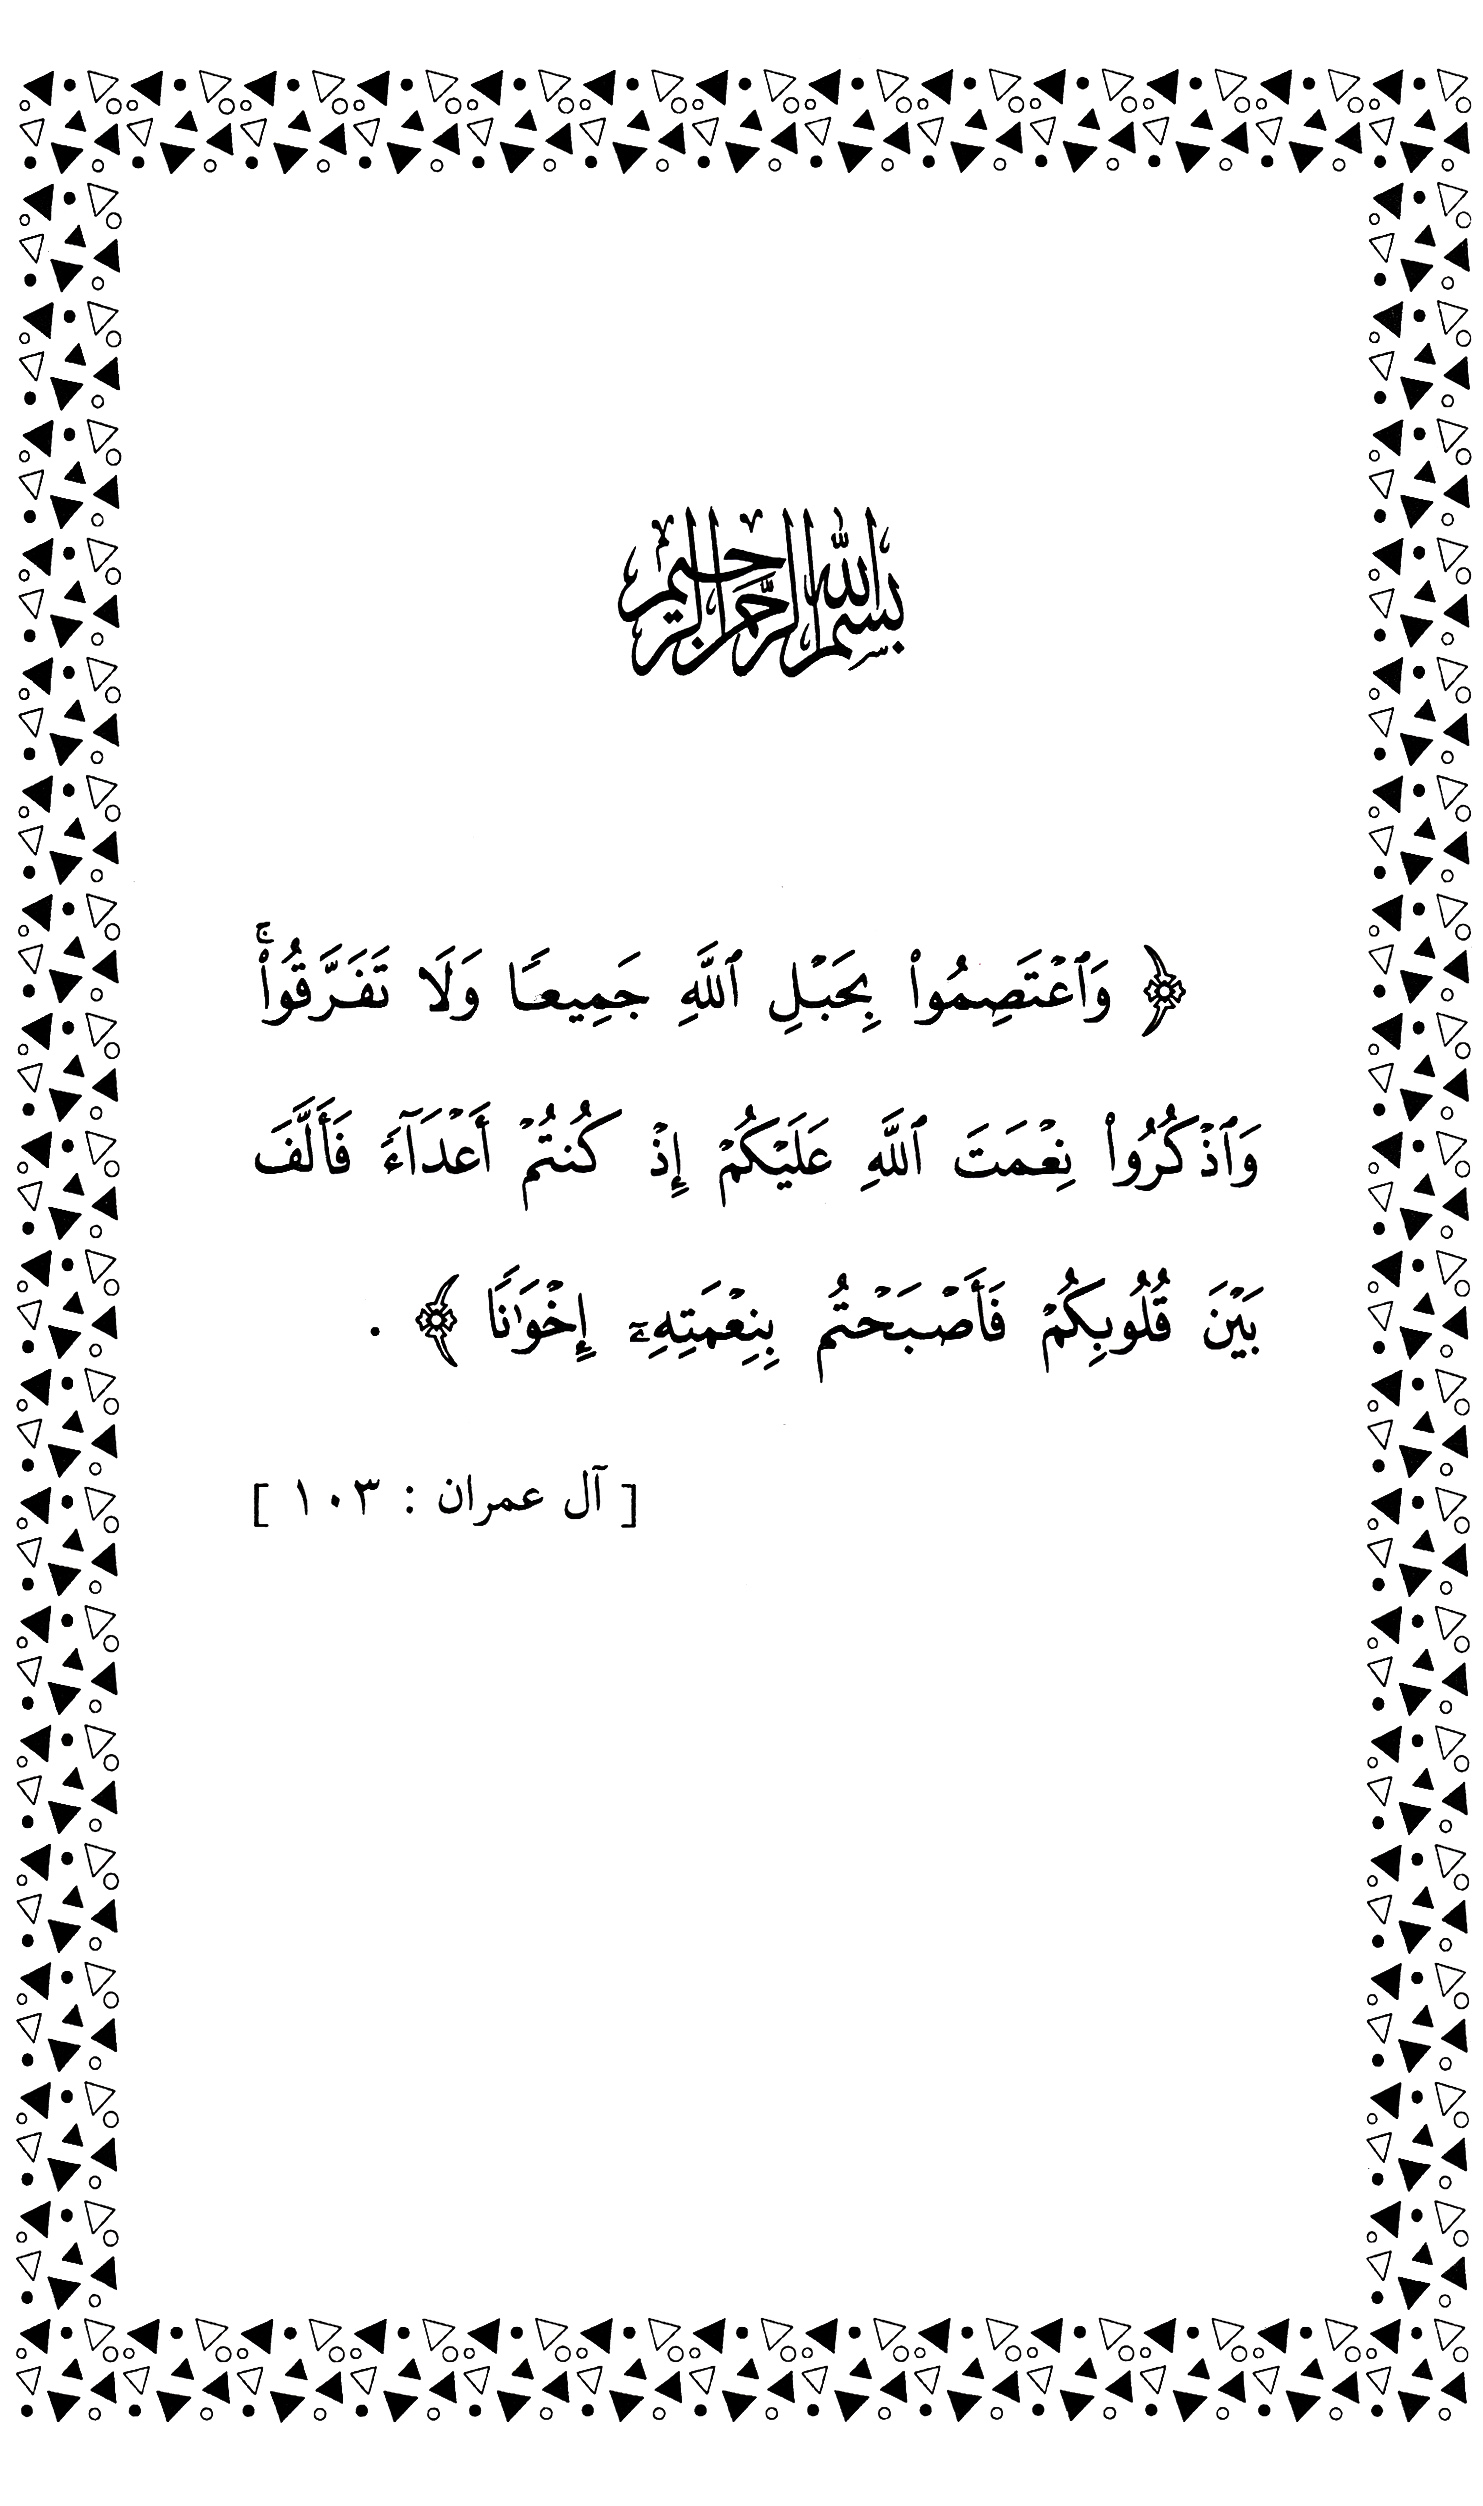 بسم الله الرحمن الرحيم
﴿ وَٱعْتَصِمُوا۟ بِحَبْلِ ٱللَّهِ جَمِيعًا وَلَا تَفَرَّقُوا۟ ۚ
وَٱذْكُرُوا۟ نِعْمَتَ ٱللَّهِ عَلَيْكُمْ إِذْ كُنتُمْ أَعْدَآءً فَأَلَّفَ
بَيْنَ قُلُوبِكُمْ فَأَصْبَحْتُم بِنِعْمَتِهِۦٓ إِخْوَٰنًا ﴾ .
[ آل عمران : ١٠٣ ]